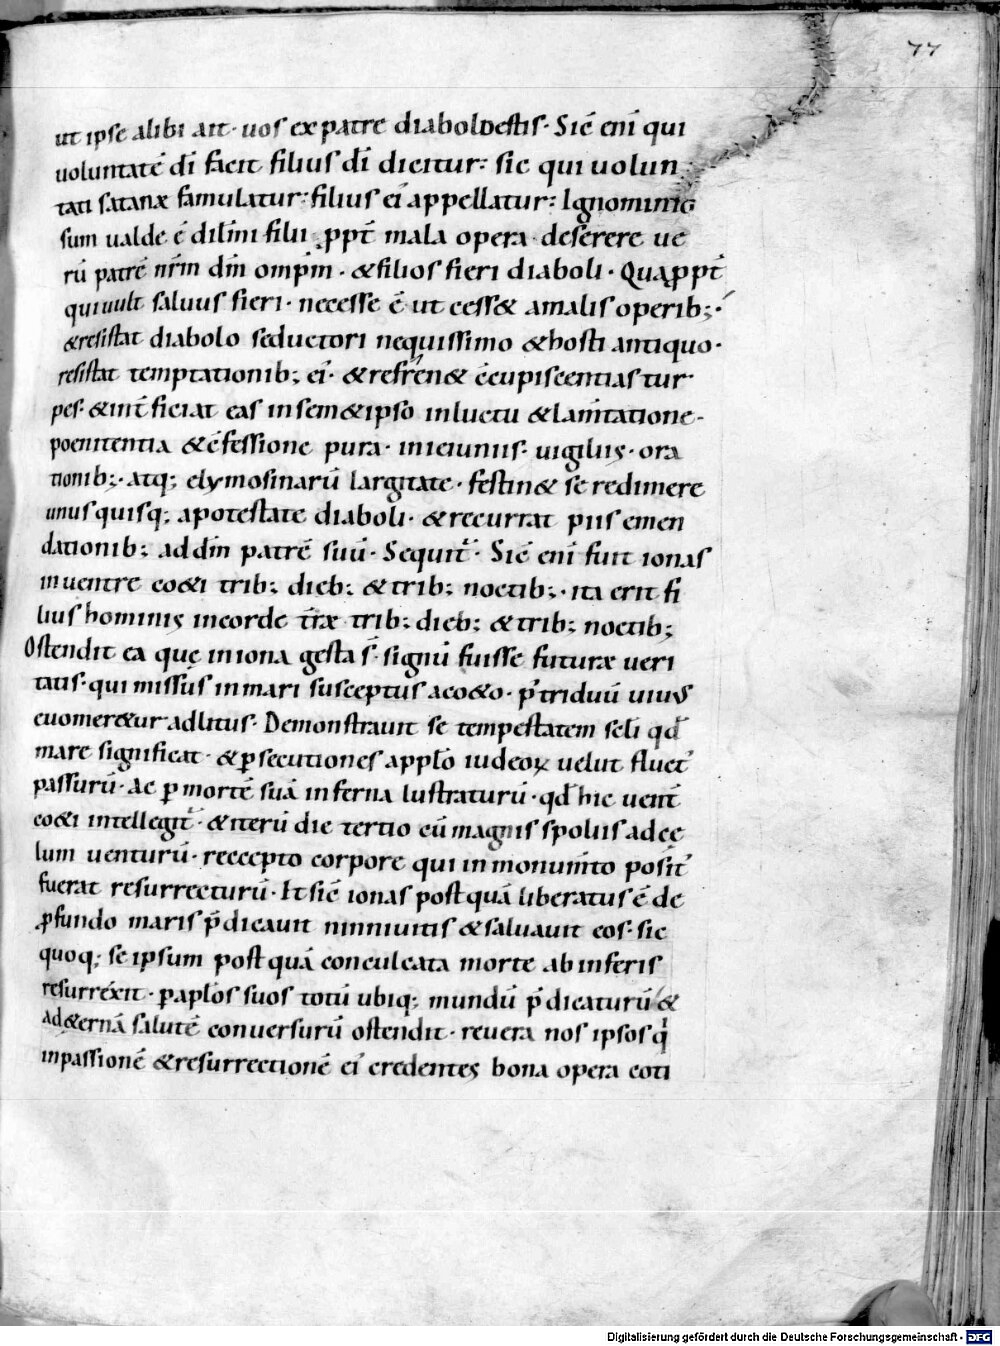 77
ut ipse alibi ait· uos ex patre diabolo estis· Sic̄ eni̅ qui
uoluntatē dī facit filius dī dicitur: sic qui uolun
tati satanæ famulatur: filius ei̓ appellatur: Ignominio
sum ualde ē dilm̅i filii ꝓpt̄ mala opera· deserere ue
rū patrē nr̅m dn̅m omp̅m· & filios fieri diaboli· Quaꝓpt̄
qui uult saluus fieri· necesse ē ut cess& a malis operib;·
& resistat diabolo seductori nequissimo & hosti antiquo·
resistat temptationib; ei̓· & refren& c̄cupiscentias tur
pes· & int̄ficiat eas in sem&ipso in luctu & lam̅tatione·
poenitentia & c̄fessione pura· in ieiuniis· uigiliis· ora
tionib;· atq; elymosinarū largitate· festin& se redimere
unus quisq; a potestate diaboli· & recurrat piis emen
dationib; ad dn̅m patrē suū· Sequit̓· Sic̄ eni̅ fuit ionas
in uentre co&i trib; dieb; & trib; noctib;· ita erit fi
lius hominis in corde tr̅æ trib; dieb; & trib; noctib;
Ostendit ea quę in iona gesta s̄· signū fuisse futuræ ueri
tatis· qui missus in mari susceptus a co&o· p̄ triduū uiuus
euomer&ur ad litus· Demonstrauit se tempestatem sc̅li qd̄
mare significat· & ꝑsecutiones applo̅ iudeoꝝ uelut fluct̓
passurū· Ac ꝑ mortē suā inferna lustraturū· qd̄ hic uent̄
co&i intellegit̓· & iterū die tertio cū magnis spoliis ad cę
lum uenturū· recepto corpore qui in monum̅to posit̓
fuerat resurrecturū· Et sic̄ ionas post quā liberatus ē de
ꝓfundo maris p̄dicauit ninniuitis & saluauit eos· sic
quoq; se ipsum post quā conculcata morte ab inferis
resurrexit· ꝑ aplos̅ suos totū ubiq; mundū p̄dicaturū &
ad &ernā salutē conuersurū ostendit· reuera nos ipsos q̓
in passionē & resurrectionē ei̓ credentes bona opera coti
Digitalisierung gefördert durch die Deutsche Forschungsgemeinschaft - DFG